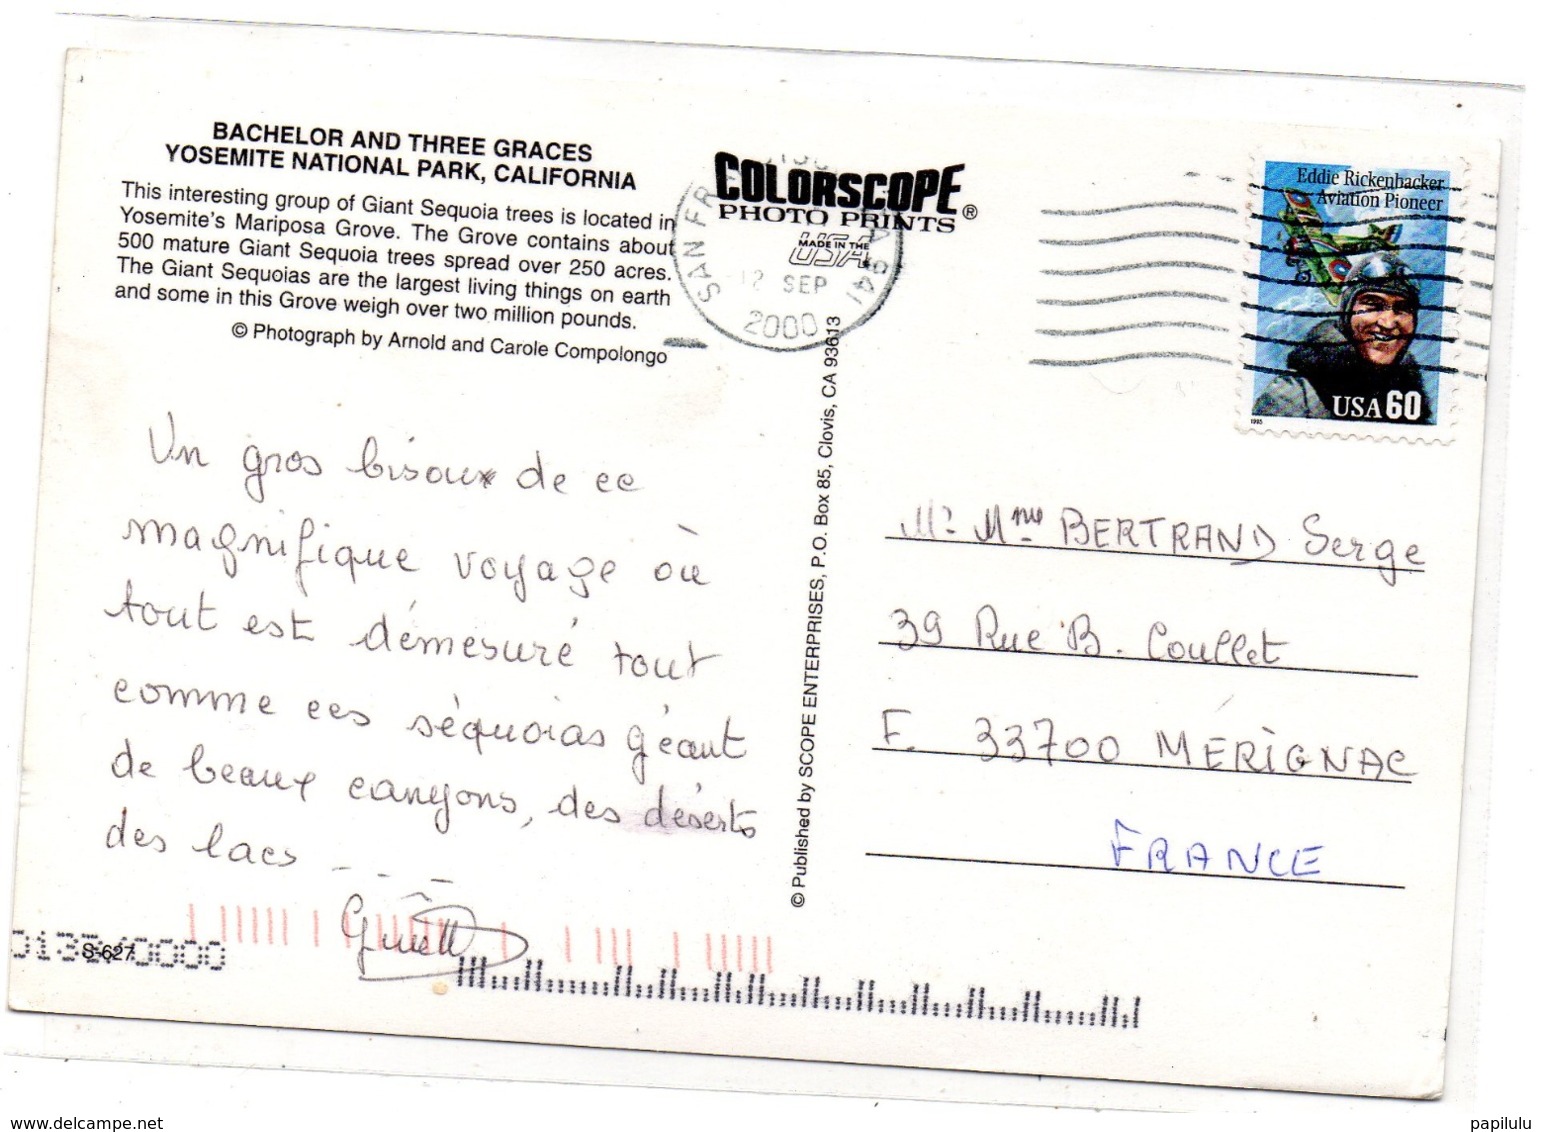 BACHELOR AND THREE GRACES
YOSEMITE NATIONAL PARK, CALIFORNIA
This interesting group of Giant Sequoia trees is located in
Yosemite's Mariposa Grove. The Grove contains about
500 mature Giant Sequoia trees spread over 250 acres.
The Giant Sequoias are the largest living things on earth
and some in this Grove weigh over two million pounds.
© Photograph by Arnold and Carole Compolongo
Un gros bisoux de ce
magnifique voyage où
tout est démesuré tout
comme ces séquoias géant
de beaux canyons, des déserts
des lacs ----
S-627
COLORSCOPE®
PHOTO PRINTS
MADE IN THE
USA
SAN FR
941
12 SEP
2000
© Published by SCOPE ENTERPRISES, P.O. Box 85, Clovis, CA 93613
Eddie Rickenbacker
Aviation Pioneer
USA 60
1995
Mr Mme BERTRAND Serge
39 Rue B. Coullet
F. 33700 MERIGNAC
FRANCE
www.delcampe.net
papilulu